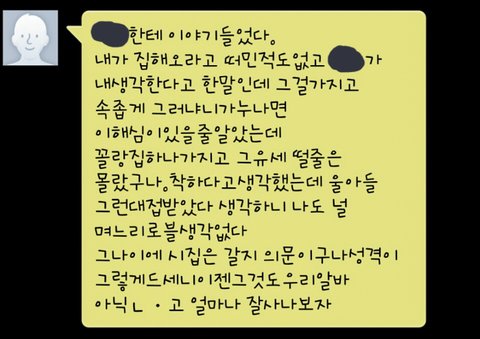 한테 이야기들었다.
내가 집해오라고 떠민적도없고 가
내생각한다고 한말인데 그걸가지고
속좁게 그러냐니가누나면
이해심이있을줄알았는데
꼴랑집하나가지고 그유세 떨줄은
몰랐구나,착하다고생각했는데 울아들
그런대접받았다 생각하니 나도 널
며느리로볼생각없다
그나이에 시집은 갈지 의문이구나성격이
그렇게드세니이젠그것도우리알바
아닉ㄴㆍ고 얼마나 잘사나보자